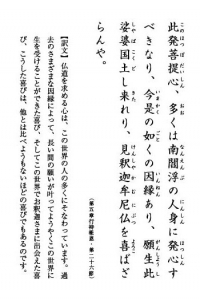 此発菩提心、多くは南閻浮の人身に発心す
べきなり、今是の如くの因縁あり、願生此
娑婆国土し来れり、見釈迦牟尼仏を喜ばざ
らんや。
(第五章行持報恩・第二十六節)
【訳文】仏道を求める心は、この世界の人の多くにそなわっています。過
去のさまざまな因縁によって、長い間の願いが叶ってようやくこの世界に
生を受けることができた喜び、そしてこの世界でお釈迦さまに出会えた喜
び。こうした喜びは、他とは比べようもないほどの喜びでもあるのです。